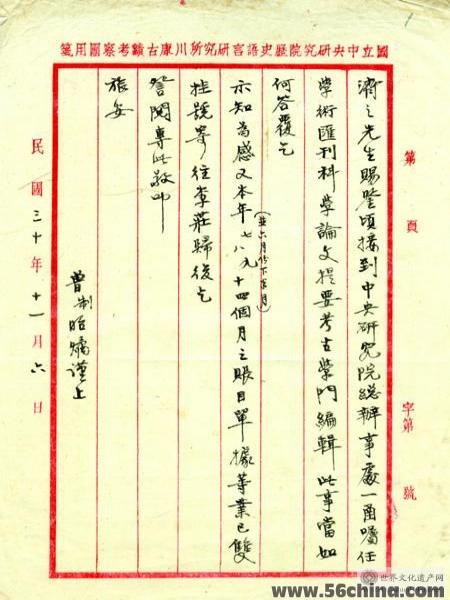 國立中央研究院歷史語言研究所川康古蹟考察團用箋
第 頁
字第 號
濟之先生賜鑒頃接到中央研究院總辦事處一函囑任
學術匯刊科學論文提要考古學門編輯此事當如
何答覆乞
示知為感又本年七八九十四個月之賬目單據等業已雙
(並六月份下半月)
挂號寄往李莊歸後乞
詧閱專此敬叩
旅安
曾制昭燏謹上
民國三十年十一月六日
世界文化遺产网
www.56china.com